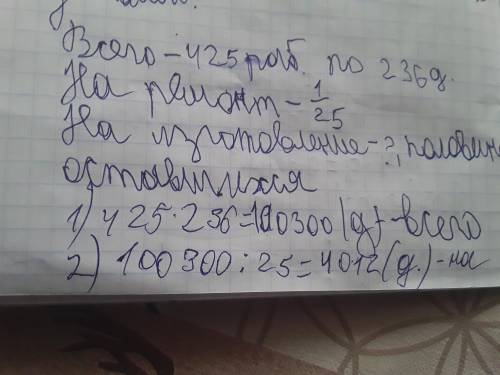 Всего – 425 раб. по 236 д.
На ремонт – 1/25
На изготовление – ?, половин
оставшихся
1) 425 · 236 = 100300 (д) – всего
2) 100300 : 25 = 4012 (д.) – на